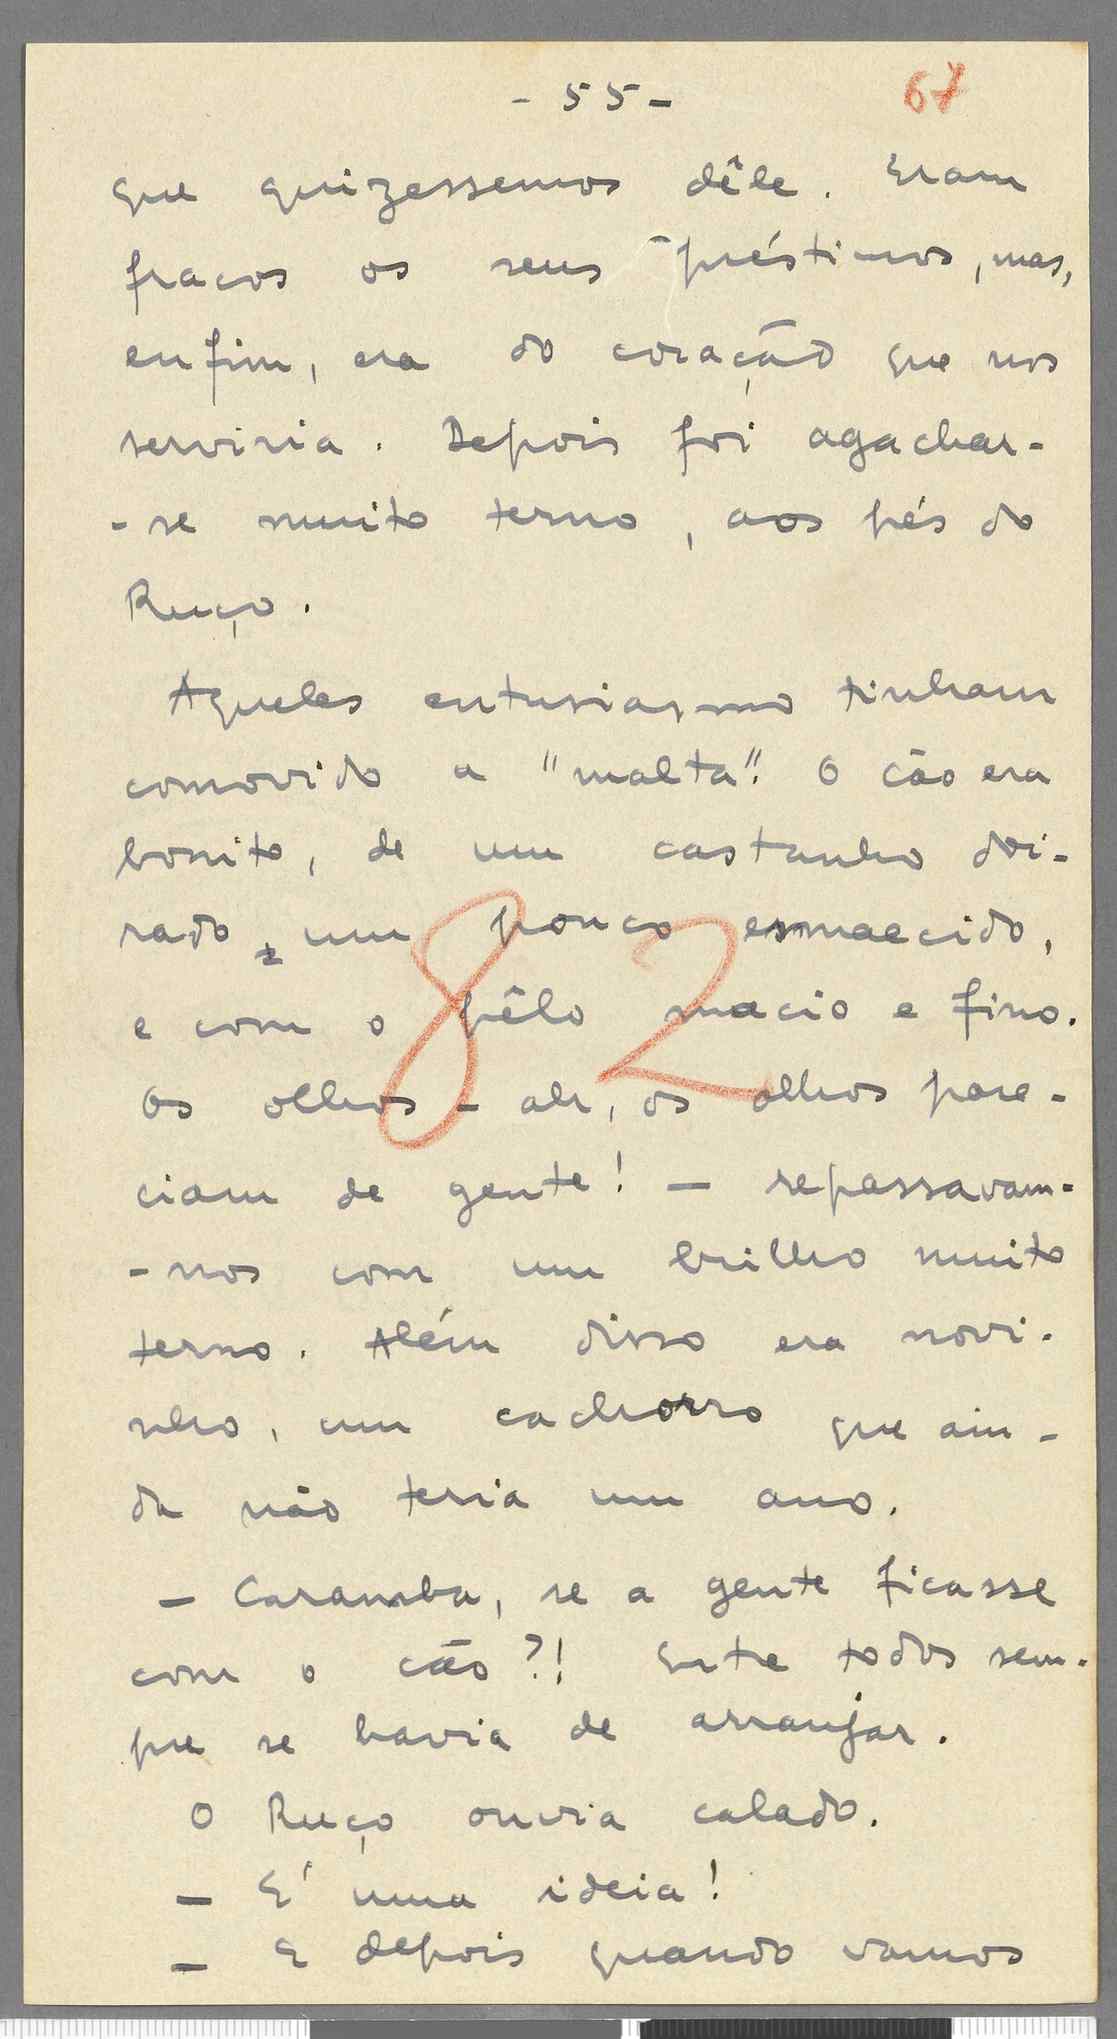 - 55 - 67
que quizessemos dêle. Eram
fracos os seus préstimos, mas,
enfim, era do coração que nos
serviria. Depois foi agachar-
-se muito terno, aos pés do
Ruço.
Aqueles entusiasmo tinham
comovido a "malta". O cão era
bonito, de um castanho doi-
rado, um pouco esmaecido,
e com o pêlo macio e fino.
Os olhos - ah, os olhos pare-
ciam de gente! - repassavam-
-nos com um brilho muito
terno. Além disso era novi-
nho, um cachorro que ain-
da não teria um ano.
- Caramba, se a gente ficasse
com o cão?! Entre todos sem-
pre se havia de arranjar.
O Ruço ouvia calado.
- É uma ideia!
- E depois quando vamos
82